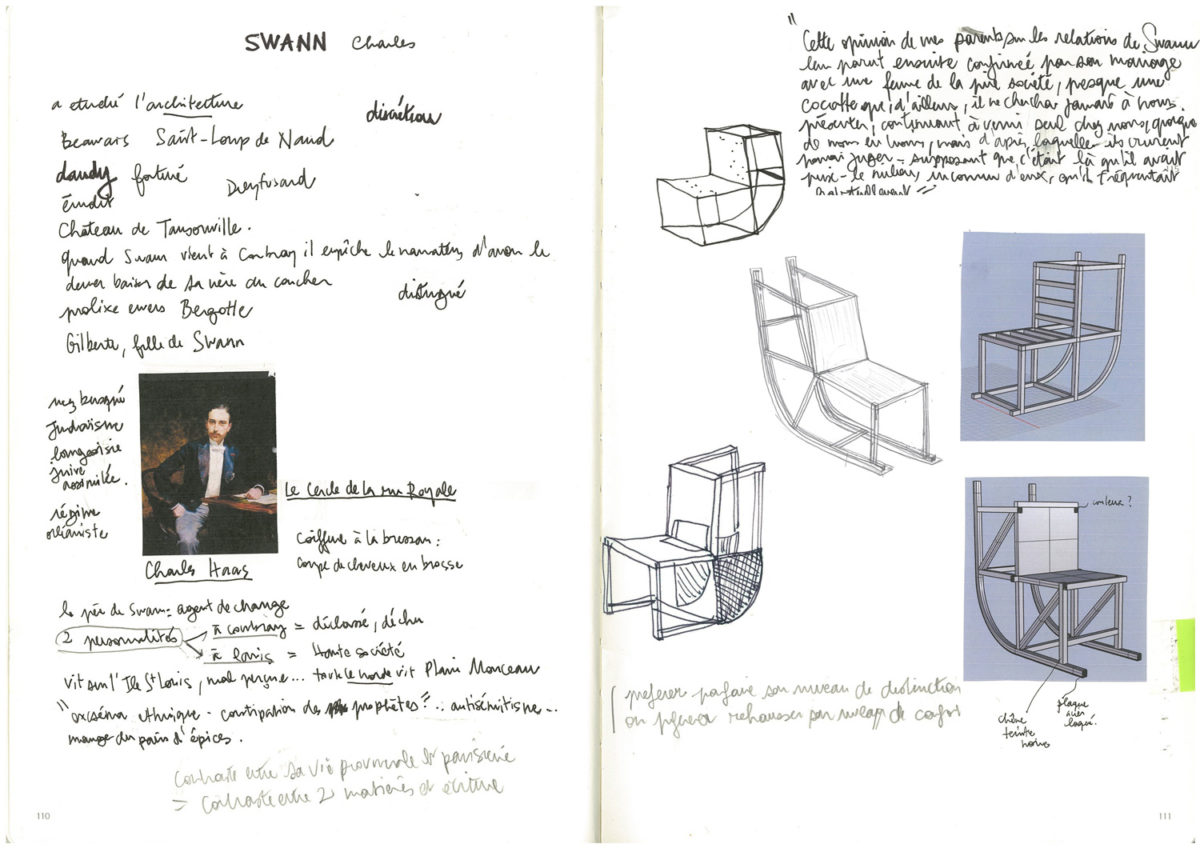 SWANN Charles
a étudié l'architecture
discrétion
Beauvais Saint-Loup de Naud
dandy fortuné
érudit
Dreyfusard
Château de Tansonville.
quand Swann vient à Combray il empêche le narrateur d'avoir le
dernier baiser de sa mère au coucher
distingué
prolixe envers Bergotte
Gilberte, fille de Swann
nez busqué
Judaïsme
bourgeoisie
juive
assimilée.
régime
orléaniste
Le Cercle de la rue Royale
coiffure à la bressan :
coupe de cheveux en brosse
Charles Haas
le père de Swann = agent de change
2 personnalités
à Combray = déclassé, déchu
à Paris = Haute société
vit sur l'Ile St Louis, mal perçue... tout le monde vit Plaine Monceau
"eczéma ethnique - constipation des prophètes" .. antisémitisme -..
mange du pain d'épices.
contraste entre sa vie provinciale et parisienne
= contraste entre 2 matières et écriture
110
"
Cette opinion de mes parents sur les relations de Swann
leur parut ensuite confirmée par son mariage
avec une femme de la pire société, presque une
cocotte que, d'ailleurs, il ne chercha jamais à nous
présenter, continuant à venir seul chez nous, quoique
de moins en moins, mais d'après laquelle ils crurent
pouvoir juger - supposant que c'était là qu'il avait
prise - le milieu, inconnu d'eux, qu'il fréquentait
habituellement "
couleur ?
préférer parfaire son niveau de distinction
ou préférer rehausser son niveau de confort
chêne
teinte
noire
plaque
acier
laqué.
111